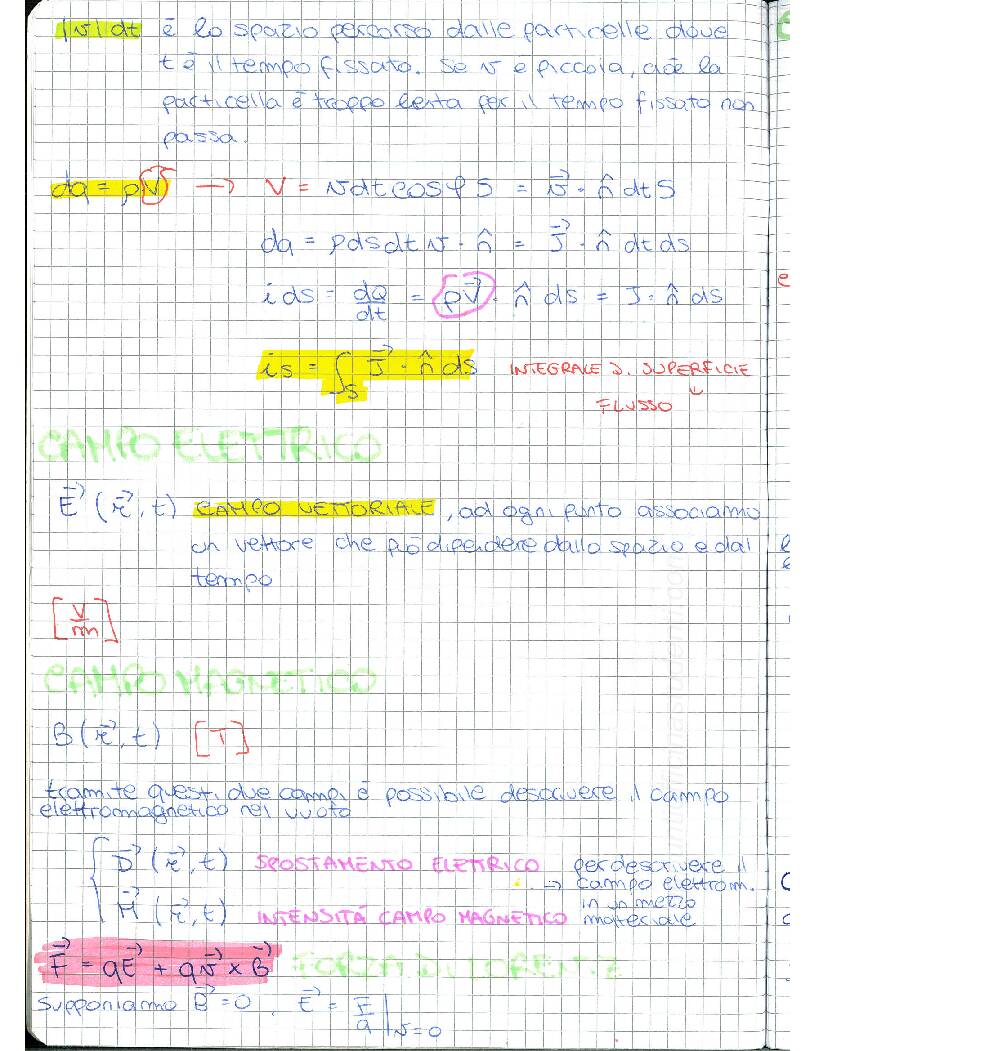 |v| dt è lo spazio percorso dalle particelle dove
t è il tempo fissato. Se v è piccola, cioè la
particella è troppo lenta per il tempo fissato non
passa.
dq = ρV → V = v dt cosφ S = v⃗ · n̂ dt S
dq = ρ ds dt v · n̂ = J⃗ · n̂ dt ds
i ds = dQ/dt = ρv⃗ · n̂ ds = J · n̂ ds
is = ∫S J⃗ · n̂ ds INTEGRALE DI SUPERFICIE
↓
FLUSSO
CAMPO ELETTRICO
E⃗ (r⃗, t) CAMPO VETTORIALE, ad ogni punto associamo
un vettore che può dipendere dallo spazio e dal
tempo
[V/m]
CAMPO MAGNETICO
B(r⃗, t) [T]
tramite questi due campi è possibile descrivere il campo
elettromagnetico nel vuoto
D⃗ (r⃗, t) SPOSTAMENTO ELETTRICO
H⃗ (r⃗, t) INTENSITÀ CAMPO MAGNETICO
→ per descrivere il
campo elettrom.
in un mezzo
materiale
F⃗ = qE⃗ + qv⃗ × B⃗ FORZA DI LORENTZ
Supponiamo B⃗ = 0, E⃗ = F/q |v=0